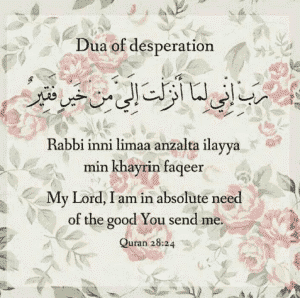 Dua of desperation
رَبِّ إِنِّي لِمَا أَنْزَلْتَ إِلَيَّ مِنْ خَيْرٍ فَقِيرٌ
Rabbi inni limaa anzalta ilayya
min khayrin faqeer
My Lord, I am in absolute need
of the good You send me.
Quran 28:24